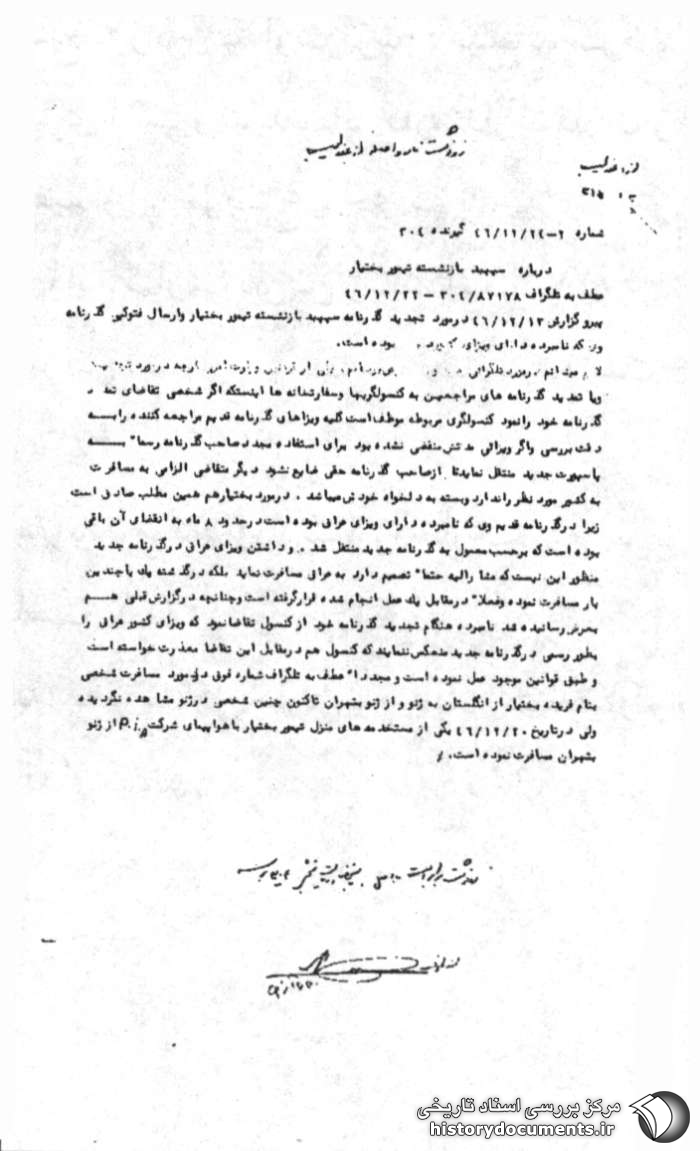 رونوشت نامه واصله از عندلیب
از: عندلیب
۳۱۵
شماره ۲-۴۶/۱۲/۲۴ گیرنده ۳۰۴
درباره سپهبد بازنشسته تیمور بختیار
عطف به تلگراف ۳۰۴/۸۷۱۷۸ - ۴۶/۱۲/۲۲
پیرو گزارش ۴۶/۱۲/۱۳ درمورد تجدید گذرنامه سپهبد بازنشسته تیمور بختیار وارسال فتوکپی گذرنامه
وی که نامبرده دارای ویزای بوده است.
ویا تمدید گذرنامه های مراجعین به کنسولگریها وسفارتخانه ها اینستکه اگر شخصی تقاضای
گذرنامه خود را نمود کنسولگری مربوطه موظف است کلیه ویزاهای گذرنامه قدیم مراجعه کننده را بـــه
دقت بررسی واگر ویزائی مدتش منقضی نشده بود برای استفاده مجدد صاحب گذرنامه رسما" بـــه
پاسپورت جدید منتقل نماید تا ازصاحب گذرنامه حقی ضایع نشود دیگر متقاضی الزامی به مسافرت
به کشور مورد نظر راندارد وبسته به دلخواه خودش میباشد . درمورد بختیارهم همین مطلب صادق است
زیرا درگذرنامه قدیم وی که نامبرده دارای ویزای عراق بوده است درحدود ۸ ماه به انقضای آن باقی
بوده است که برحسب معمول به گذرنامه جدید منتقل شده . و داشتن ویزای عراق درگذرنامه جدید
منظور این نیست که مشارالیه حتما" تصمیم دارد به عراق مسافرت نماید بلکه درگذشته یك یاچندین
بار مسافرت نموده وفعلا" درمقابل یك عمل انجام شده قرارگرفته است وچنانچه درگزارش قبلی هــم
بعرض رسانیده شد نامبرده هنگام تجدید گذرنامه خود ازکنسول تقاضا نمود که ویزای کشور عراق را
بطور رسمی درگذرنامه جدید منعکس ننمایند که کنسول هم درمقابل این تقاضا معذرت خواسته است
و طبق قوانین موجود عمل نموده است و مجددا" عطف به تلگراف شماره فوق درمورد مسافرت شخصی
بنام فریده بختیار از انگلستان به ژنو و از ژنو بتهران تاکنون چنین شخصی درژنو مشاهده نگردیده
ولی درتاریخ ۴۶/۱۲/۲۰ یکی از مستخدمه های منزل تیمور بختیار باهواپیمای شرکت p.i.a از ژنو
بتهران مسافرت نموده است.
مرکز بررسی اسناد تاریخی
historydocuments.ir